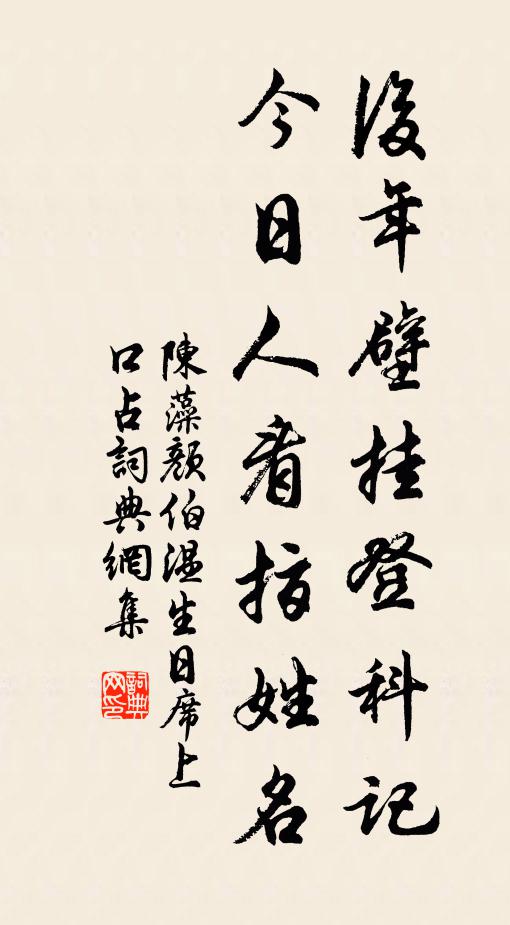 後年壁挂登科記
今日人看指姓名
陳藻顏伯溫生日席上
口占詞典網集
詞典網印